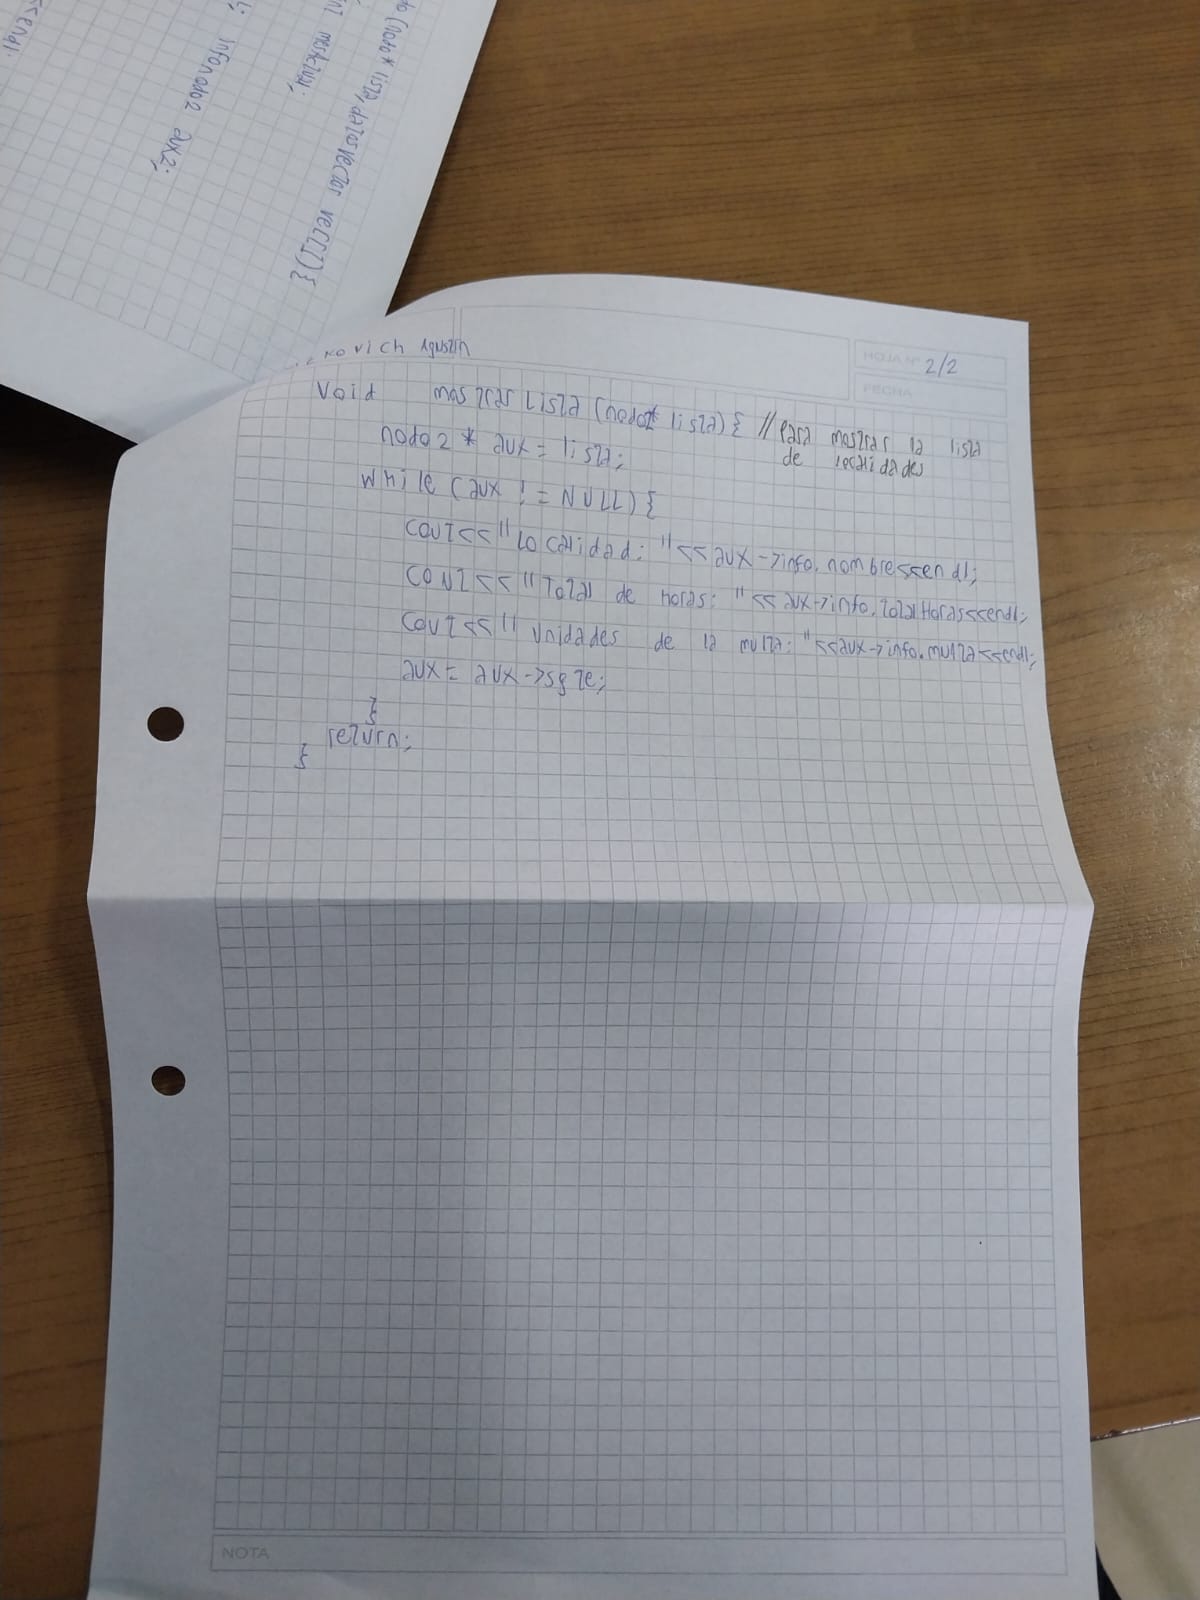 do (nodo* lista, datosvector vec[]){
int mesActual;
infonodo2 aux2;
<<endl;
kovich Agustin
HOJA N° 2/2
FECHA
void mostrarLista (nodo2* lista){ // Para mostrar la lista
de localidades
nodo2 * aux = lista;
while (aux != NULL){
cout<<"Localidad: "<<aux->info.nombre<<endl;
cout<<"Total de horas: "<<aux->info.totalHoras<<endl;
cout<<"Unidades de la multa: "<<aux->info.multa<<endl;
aux = aux->sgte;
}
return;
}
NOTA